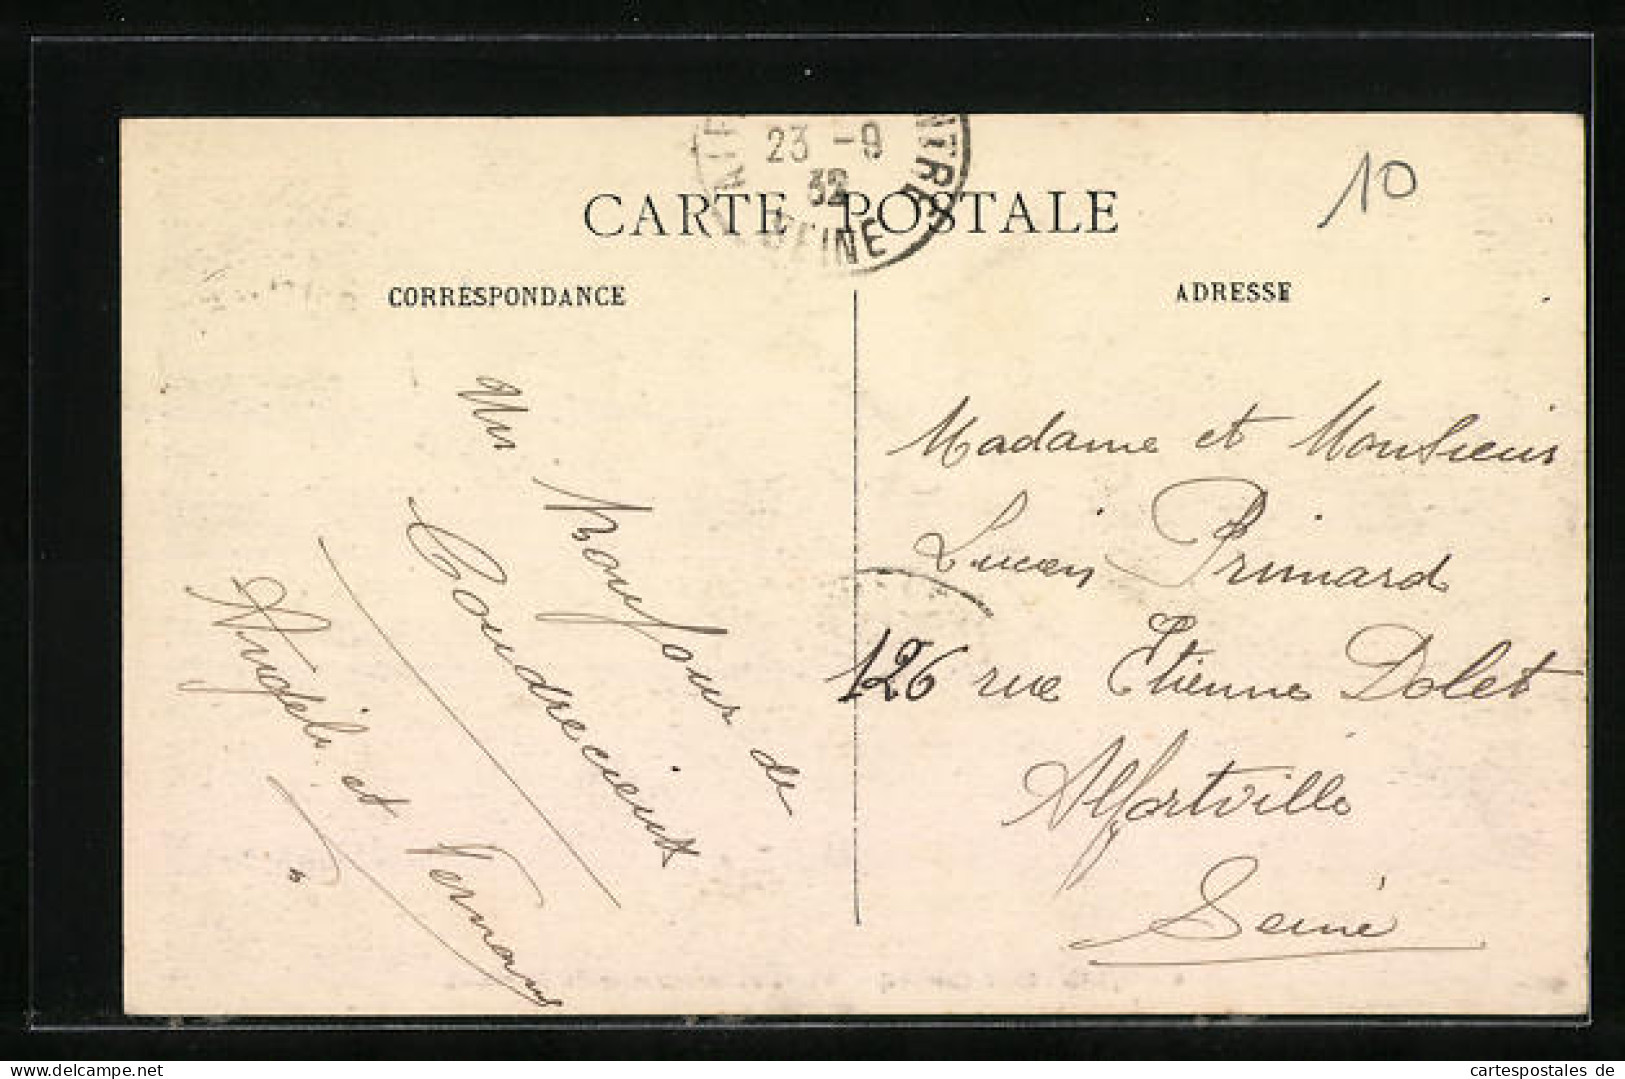 23 -9
32
NTRE
SEINE
10
CARTE POSTALE
CORRESPONDANCE
ADRESSE
Un bonjour de
Coudrecieux
Angèle et Fernand
Madame et Monsieur
Lucien Primard
126 rue Etienne Dolet
Alfortville
Seine
www.cartespostales.eu
cartespostales de